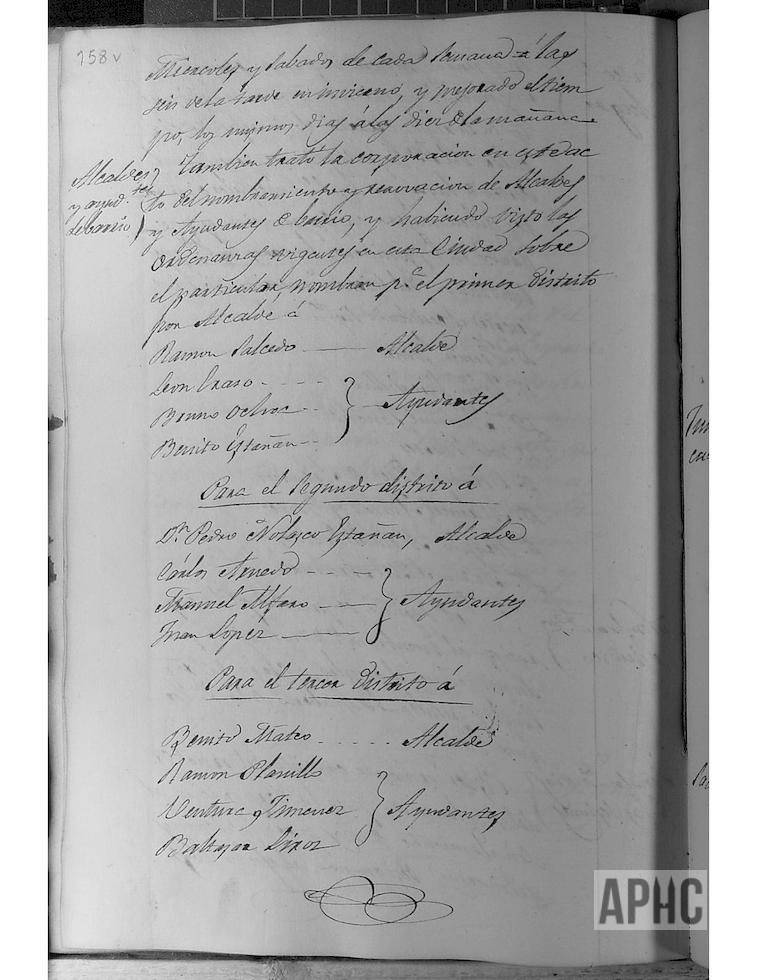 158 v
Miercoles y sabados de cada semana á las
seis de la tarde en invierno, y mejorado el tiem
po, los mismos dias á las diez de la mañana.
Alcaldes
y ayud.tes
de barrio
Tambien trató la corporacion en este ac
to del nombramiento y renovacion de Alcaldes
y Ayudantes de barrio, y habiendo visto las
ordenanzas vigentes en esta Ciudad sobre
el particular, nombran p.a el primer distrito
por Alcalde á
Ramon Salcedo Alcalde
Leon Eraso
Bruno Ochoa Ayudantes
Benito Eztañan
Para el segundo distrito á
Dn. Pedro Nolazco Eztañan, Alcalde
Cárlos Arnedo
Manuel Alfaro Ayudantes
Juan Lopez
Para el tercer distrito á
Benito Mateo Alcalde
Ramon Planillo
Ventura Jimenez Ayudantes
Baltasar
APHC